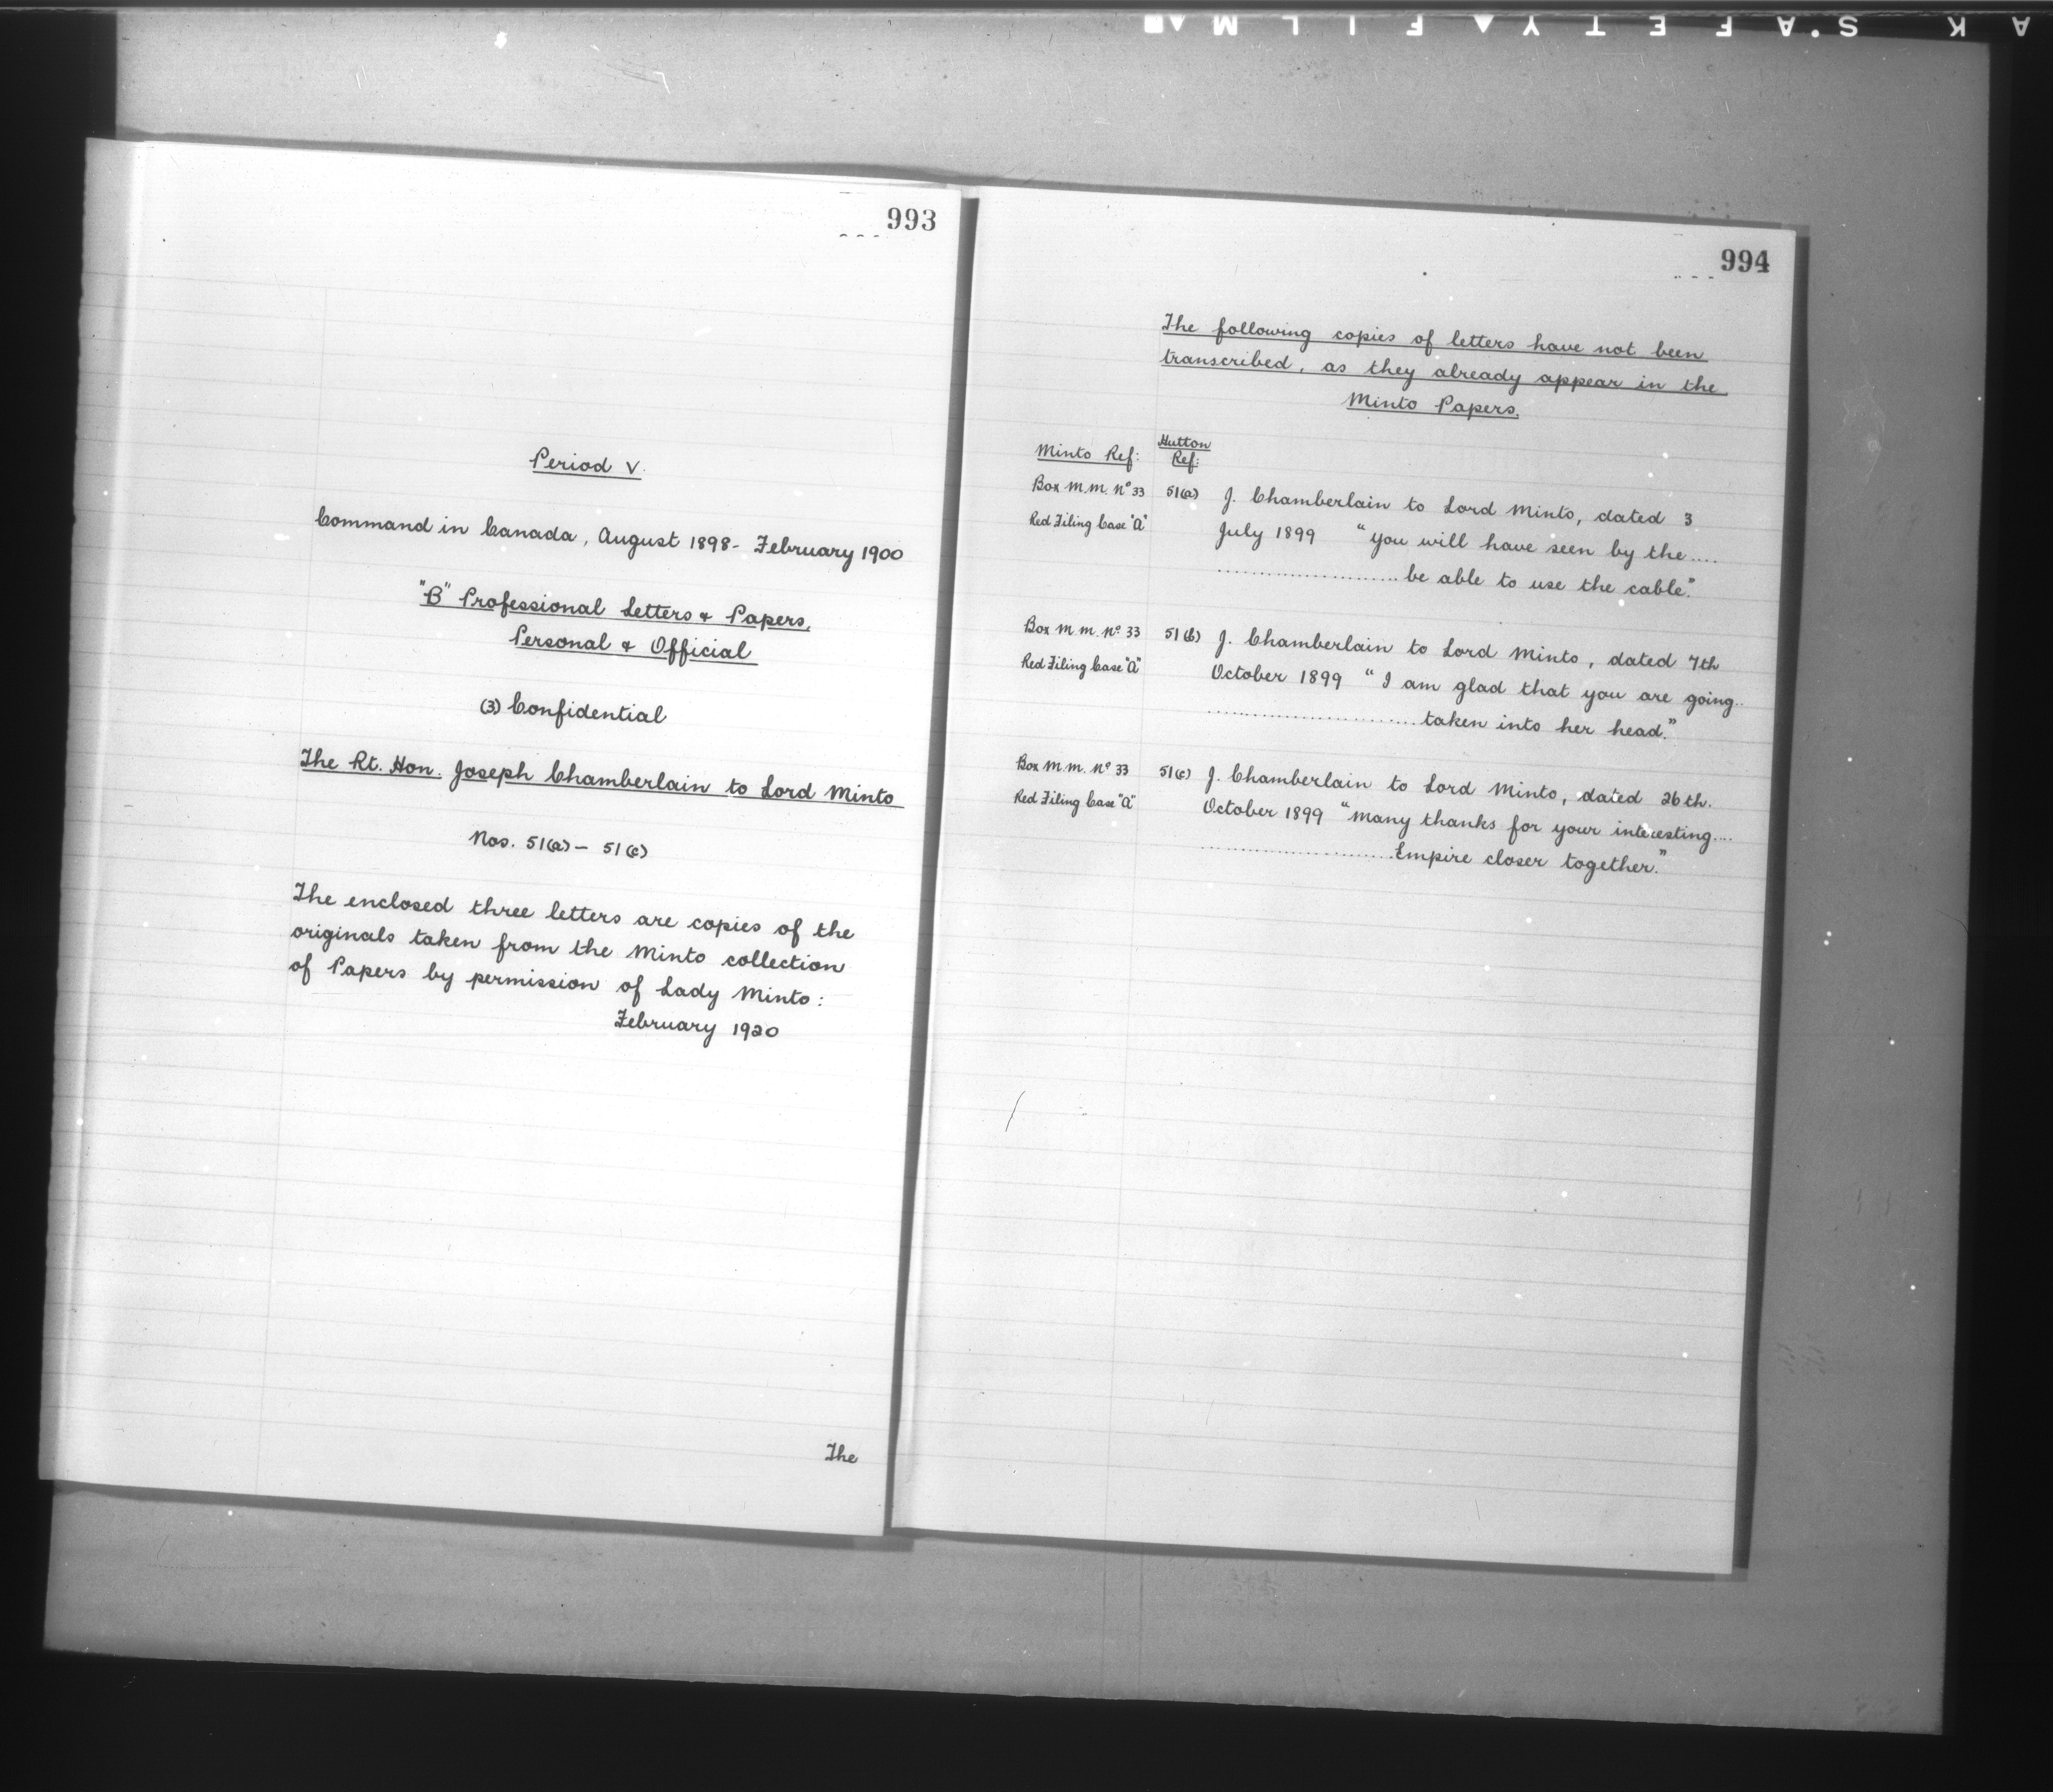 AK S.A F E T Y ▲ F I L M ▲
993
Period V.
Command in Canada, August 1898- February 1900
"B" Professional Letters & Papers,
Personal & Official
(3) Confidential
The Rt. Hon. Joseph Chamberlain to Lord Minto
Nos. 51(a) – 51(c)
The enclosed three letters are copies of the
originals taken from the Minto collection
of Papers by permission of Lady Minto:
February 1920
The
994
The following copies of letters have not been
transcribed, as they already appear in the
Minto Papers.
Minto Ref: Hutton
Ref:
Box M.M. Nº 33 51(a) J. Chamberlain to Lord Minto, dated 3
Red Filing Case "A" July 1899 "You will have seen by the ....
........................ be able to use the cable."
Box M.M. Nº 33 51(b) J. Chamberlain to Lord Minto, dated 7th
Red Filing Case "A" October 1899 "I am glad that you are going..
........................ taken into her head."
Box M.M. Nº 33 51(c) J. Chamberlain to Lord Minto, dated 26th.
Red Filing Case "A" October 1899 "Many thanks for your interesting....
........................ Empire closer together."